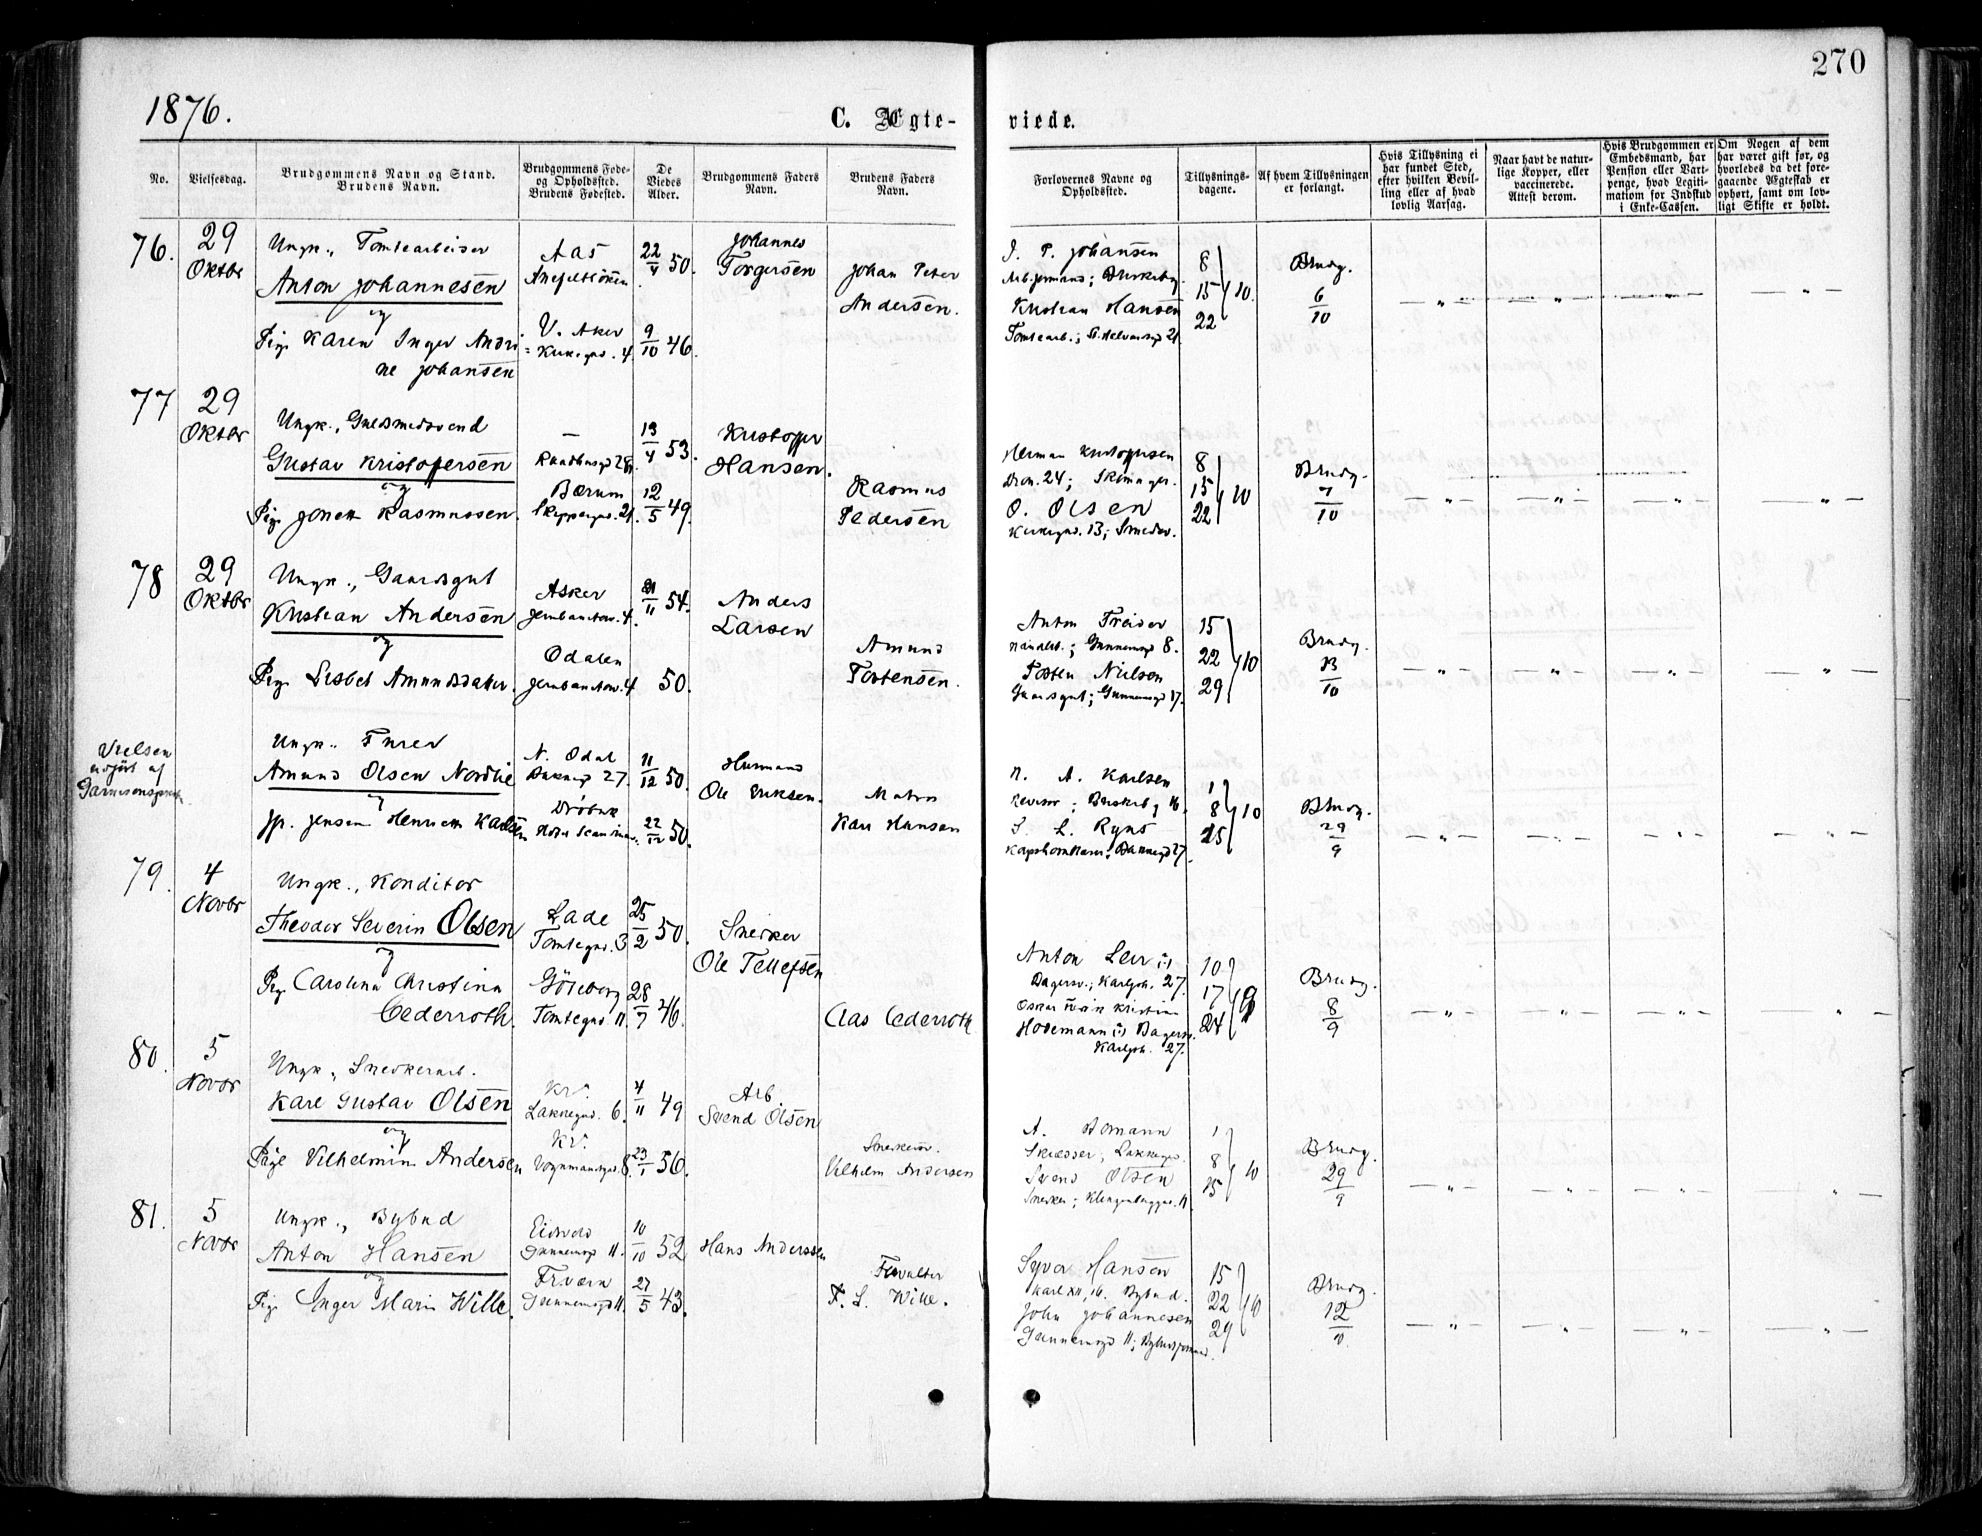 270
1876.
C. Ægte-
viede.
No.
Vielsesdag.
Brudgommens Navn og Stand.
Brudens Navn.
Brudgommens Føde-
og Opholdssted.
Brudens Fødested.
De
Viedes
Alder.
Brudgommens Faders
Navn.
Brudens Faders
Navn.
Forlovernes Navne og
Opholdssted.
Tillysnings-
dagene.
Af hvem Tillysningen
er forlangt.
Hvis Tillysning ei
har fundet Sted,
efter hvilken Bevil-
ling eller af hvad
lovlig Aarsag.
Naar havt de natur-
lige Kopper, eller
vaccinerede.
Attest derom.
Hvis Brudgommen er
Embedsmand, har
Pension eller Vart-
penge, hvad Legiti-
mation for Indskud
i Enke-Cassen.
Om Nogen af dem
har været gift før, og
hvorledes da det fore-
gaaende Ægteskab er
ophørt, samt om lov-
ligt Skifte er holdt.
76.
29
Oktbr
Ungk., Tomtearbeider
Anton Johannesen
og
Pige Karen Inger Andri
ne Johansen
Aas
V. Aker
Kirkegd. 4
22/4 50.
9/10 46.
Johannes
Torgersen
Johan Peter
Andersen.
J. P. Johansen
Kristian Hansen
8
15
22
10.
Brudg.
6/10
77
29
Oktbr
Ungk., Guldsmedsvend
Gustav Kristofersen
og
Pige Jonette Rasmussen.
—
Bærum
Skippergd. 21.
13/4 53.
12/5 49.
Kristoffer
Hansen.
Rasmus
Pedersen
Herman Kristoffersen
Dron. 24;
O. Olsen
Kirkegd. 13; Smedsv.
8
15
22
10
Brudg.
7/10
78
29
Oktbr
Ungk., Gaardsgut
Kristian Andersen
og
Pige Lisbet Amundsdatter.
Asker
Jernbanetorv. 4.
Odalen
Jernbanetorv. 4
21/11 54.
50.
Anders
Larsen
Amund
Torstensen.
Anton Treider
Grønnensgd 8.
Tosten Nielsen
Gaardsgut; Grønnensgd 17.
15
22
29
10
Brudg.
13/10
Vielsen
udført af
Garnisonsprest.
Ungk., Furer
Amund Olsen Nordlie
og
Jfr. Jensen Henriette Karlsen
N. Odal
27.
Drøbak
Hotel Scandinav.
11/12 50.
22/12 50.
Husmand
Ole Eriksen.
Matros
Karl Hansen
N. A. Karlsen
Revisor; Briskeby 16.
1
8
15
10
Brudg.
29/9
79.
4
Novbr
Ungk., Konditor
Theodor Severin Olsen
og
Pige Carolina Christina
Cederroth.
Lade
Tomtegd. 3
Göteborg
Tomtegd. 11.
25/2 50.
28/7 46.
Snedker
Ole Tellefsen
Clas Cederroth
Anton Leer
Bagersv.; Karljoh. 27.
Oskar Kristian
Hodemann Bagersv.
Karljoh. 27.
10
17
24
9
Brudg.
8/9
80.
5
Novbr
Ungk., Snedkerarb.
Karl Gustav Olsen
og
Pige Vilhelmine Andersen
Kr.
Lakkegd. 6.
Kr.
Vognmandsgd. 8.
4/11 49
23/1 56.
Arb.
Svend Olsen
Snedkersv.
Vilhelm Andersen
A. Bomann
Skræder, Lakkegd.
Svend Olsen
Snedker; Klingenberggd. 11
1
8
15
10
Brudg.
29/9
81.
5
Novbr
Ungk., Bybud
Anton Hansen
og
Pige Inger Marie Wille.
Eidsvold
Grønnensgd 11.
Grønnensgd 11.
10/10 52
27/5 43.
Hans Anderssen
Forvalter
F. L. Wille.
Syver Hansen
Karl XII, 16. Bybud.
John Johannesen
Grønnensgd 11; Bybudsformand.
15
22
29
10
Brudg.
12/10